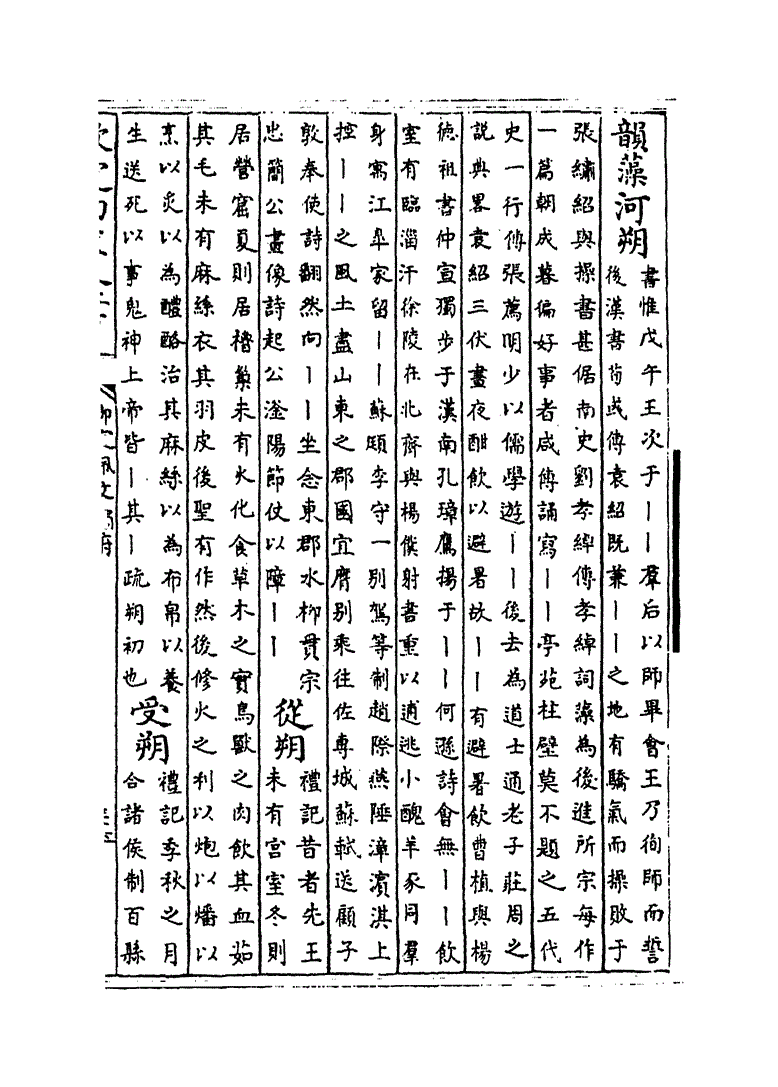 韻藻河朔
書惟戊午王次于丨丨羣后以師畢會王乃徇師而誓
後漢書荀彧傳袁紹既兼丨丨之地有驕氣而操敗于
張繡紹與操書甚倨南史劉孝綽傳孝綽詞藻為後進所宗每作
一篇朝成暮徧好事者咸傳誦寫丨丨亭苑柱壁莫不題之五代
史一行傳張薦明少以儒學遊丨丨後去為道士通老子莊周之
説典畧袁紹三伏晝夜酣飲以避暑故丨丨有避暑飲曹植與楊
徳祖書仲宣獨步于漢南孔璋鷹揚于丨丨何遜詩會無丨丨飲
室有臨淄汗徐陵在北齊與楊僕射書重以逋逃小醜羊豕同羣
身寓江臯家留丨丨蘇頲李守一別駕等制趙際燕陲漳濱淇上
控丨丨之風土盡山東之郡國宜膺別乗往佐專城蘇軾送顧子
敦奉使詩翻然向丨丨坐念東郡水柳貫宗
忠簡公畫像詩起公滏陽節仗以障丨丨
從朔
禮記昔者先王
未有宫室冬則
居營窟夏則居橧巢未有火化食草木之實鳥獸之肉飲其血茹
其毛未有麻絲衣其羽皮後聖有作然後修火之利以炮以燔以
烹以炙以為醴酪治其麻絲以為布帛以養
生送死以事鬼神上帝皆丨其丨疏朔初也
受朔
禮記季秋之月
合諸侯制百縣